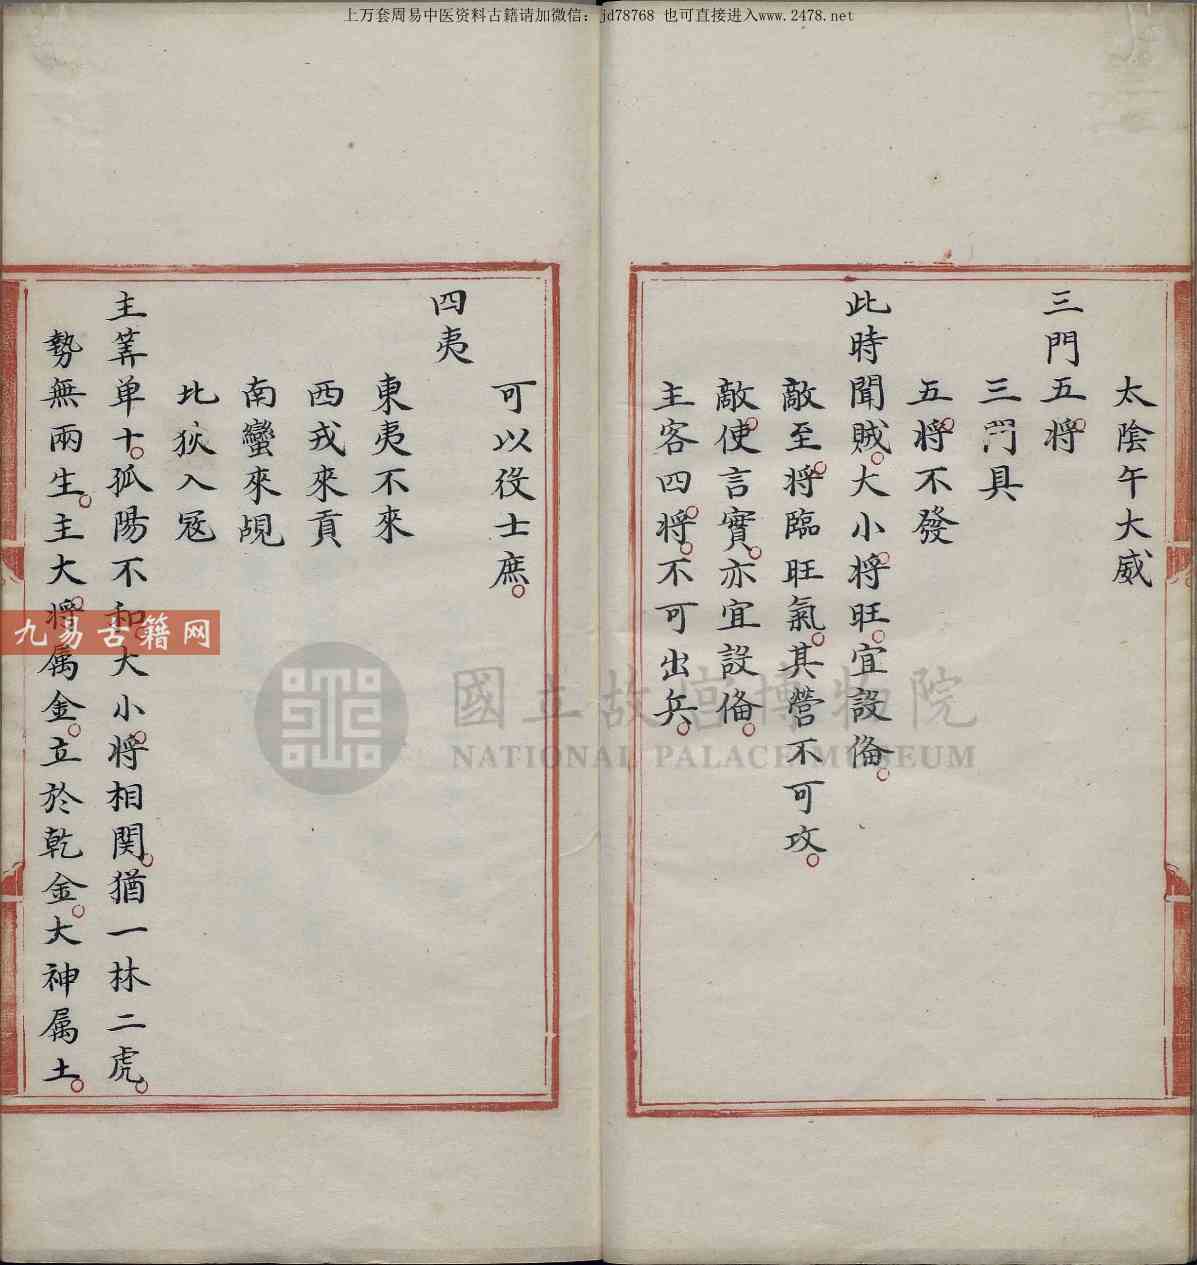 上万套周易中医资料古籍请加微信：jd78768 也可直接进入www.2478.net
太陰午大威
三門五將
三門具
五將不發
此時聞賊大小將旺宜設俻
敵至將臨旺氣其營不可攻
敵使言實亦宜設俻
主客四將不可出兵
可以役士庶
四夷
東夷不來
西戎來貢
南蠻來覘
北狄入寇
主筭单十孤陽不和大小將相関猶一林二虎
勢無兩生主大將属金立於乾金大神属土
九易古籍网
國立故宮博物院
NATIONAL PALACE MUSEUM